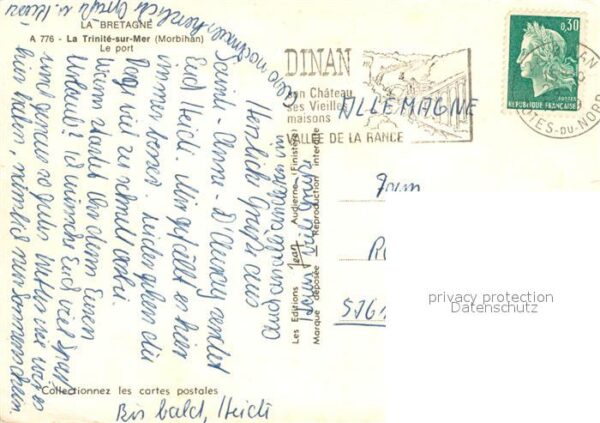 LA BRETAGNE
A 776 - La Trinité-sur-Mer (Morbihan)
Le port
DINAN
son Château
ses Vieilles
maisons
VALLÉE DE LA RANCE
0,30
POSTES
RÉPUBLIQUE FRANÇAISE
DINAN
CÔTES-DU-NORD
ALLEMAGNE
Herzliche Grüße aus
Sainte-Anne-D'Auray sendet
Euch Heidi. Mir gefällt es hier
immer besser. Leider gehen die
Tage viel zu schnell vorbei.
Wann startet Ihr denn Euren
Urlaub? Ich wünsche Euch viel Spaß
und genau so gutes Wetter wie wir es
hier haben, nämlich nur Sonnenschein
Bis bald, Heidi
Les Editions Jean Audierne (Finistère)
Marque déposée Reproduction interdite
Collectionnez les cartes postales
Fam
privacy protection
Datenschutz